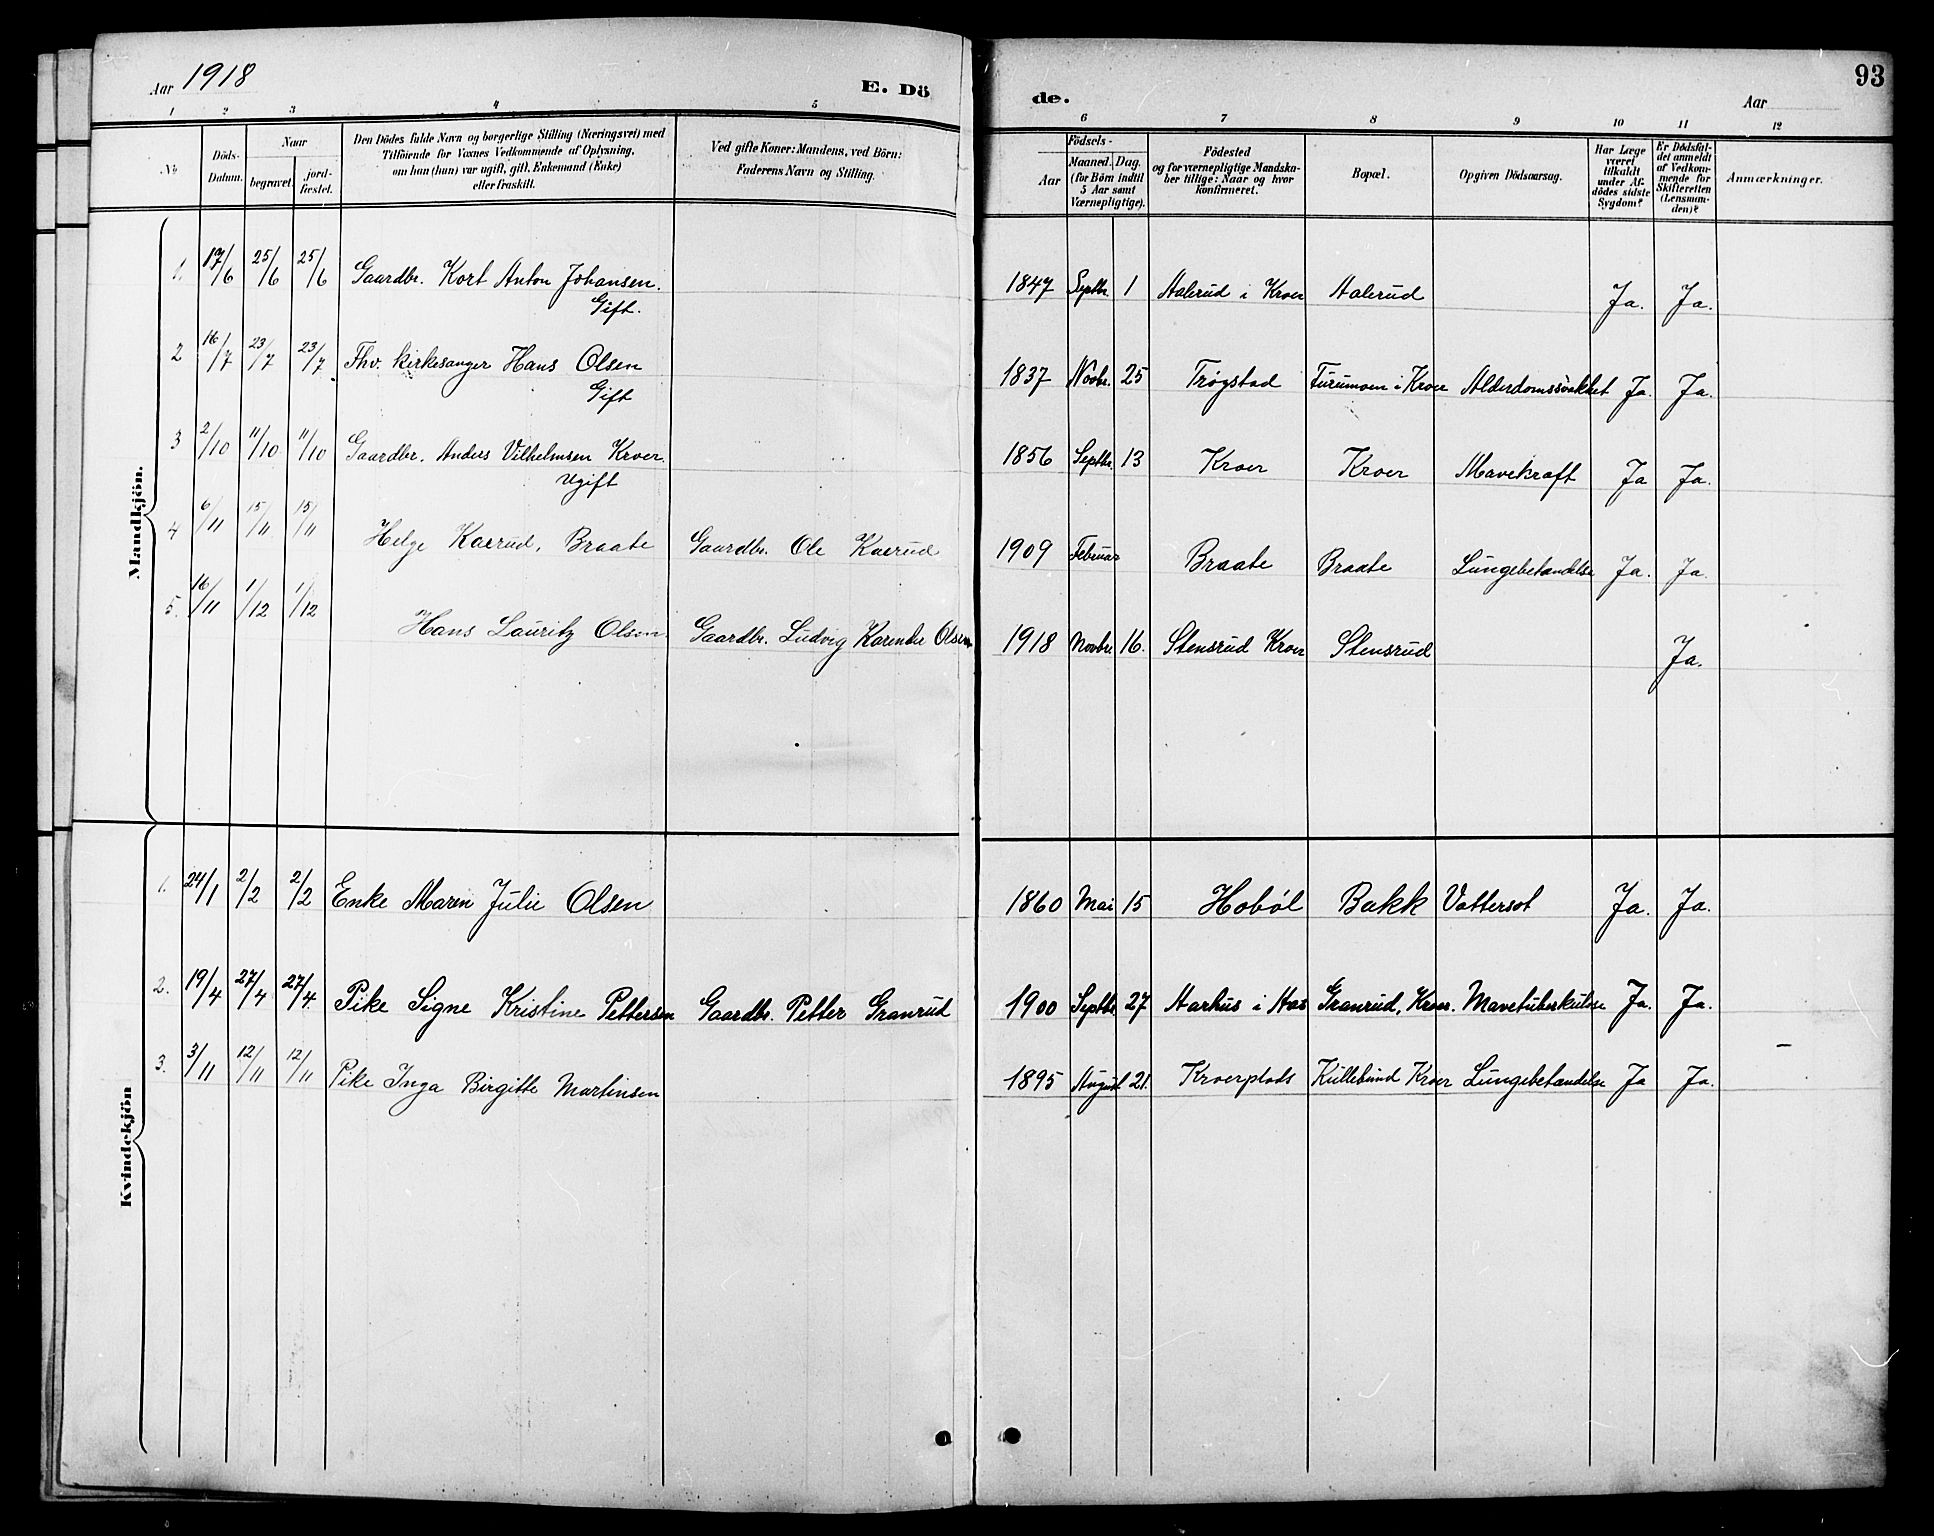 Aar 1918
E. Dö
de.
Aar
93
1 2 3 4 5 6 7 8 9 10 11 12
No
Döds-
Datum.
Naar
begravet.
jord-
fæstet.
Den Dödes fulde Navn og borgerlige Stilling (Næringsvei) med
Tilföiende for Voxnes Vedkommende af Oplysning,
om han (hun) var ugift, gift, Enkemand (Enke)
eller fraskilt.
Ved gifte Koner: Mandens, ved Börn:
Faderens Navn og Stilling.
Födsels-
Aar
Maaned. Dag.
(for Börn indtil
5 Aar samt
Værnepligtige).
Födested
og for værnepligtige Mandska-
ber tillige: Naar og hvor
konfirmeret.
Bopæl.
Opgiven Dödsaarsag.
Har Læge
været
tilkaldt
under Af-
dödes sidste
Sygdom?
Er Dödsfal-
det anmeldt
af Vedkom-
mende for
Skifteretten
(Lensman-
den)?
Anmærkninger.
Mandkjön.
1. 17/6 25/6 25/6 Gaardbr. Kort Anton Johansen. 1847 Septbr. 1 Aalerud i Kroer Aalerud Ja. Ja.
Gift.
2 16/7 23/7 23/7 Fhv. kirkesanger Hans Olsen 1837 Novbr. 25 Trøgstad Furumoen i Kroer Alderdomssvakhet Ja. Ja.
Gift
3 2/10 11/10 11/10 Gaardbr. Anders Vilhelmsen Kroer. 1856 Septbr. 13 Kroer Kroer Mavekræft Ja Ja.
Ugift
4 6/11 15/11 15/11 Helge Kaerud, Braate Gaardbr. Ole Kaerud 1909 Februar Braate Braate Lungebetændelse Ja. Ja.
5. 16/11 1/12 1/12 Hans Lauritz Olsen. Gaardbr. Ludvig Karenius Olsen 1918 Novbr 16. Stensrud Kroer Stensrud Ja.
Kvindekjön
1. 24/1 2/2 2/2 Enke Maren Julie Olsen 1860 Mai 15 Hobøl Bakk Vattersot Ja. Ja.
2. 19/4 27/4 27/4. Pike Signe Kristine Pettersen Gaardbr. Petter Granrud 1900 Septbr. 27 Aarhus i Aas Granrud, Kroer. Mavetuberkulose Ja. Ja.
3. 3/11 12/11 12/11 Pike Inga Birgitte Martinsen 1895 August 21. Kroerplads Kullebund Kroer Lungebetændelse Ja Ja.